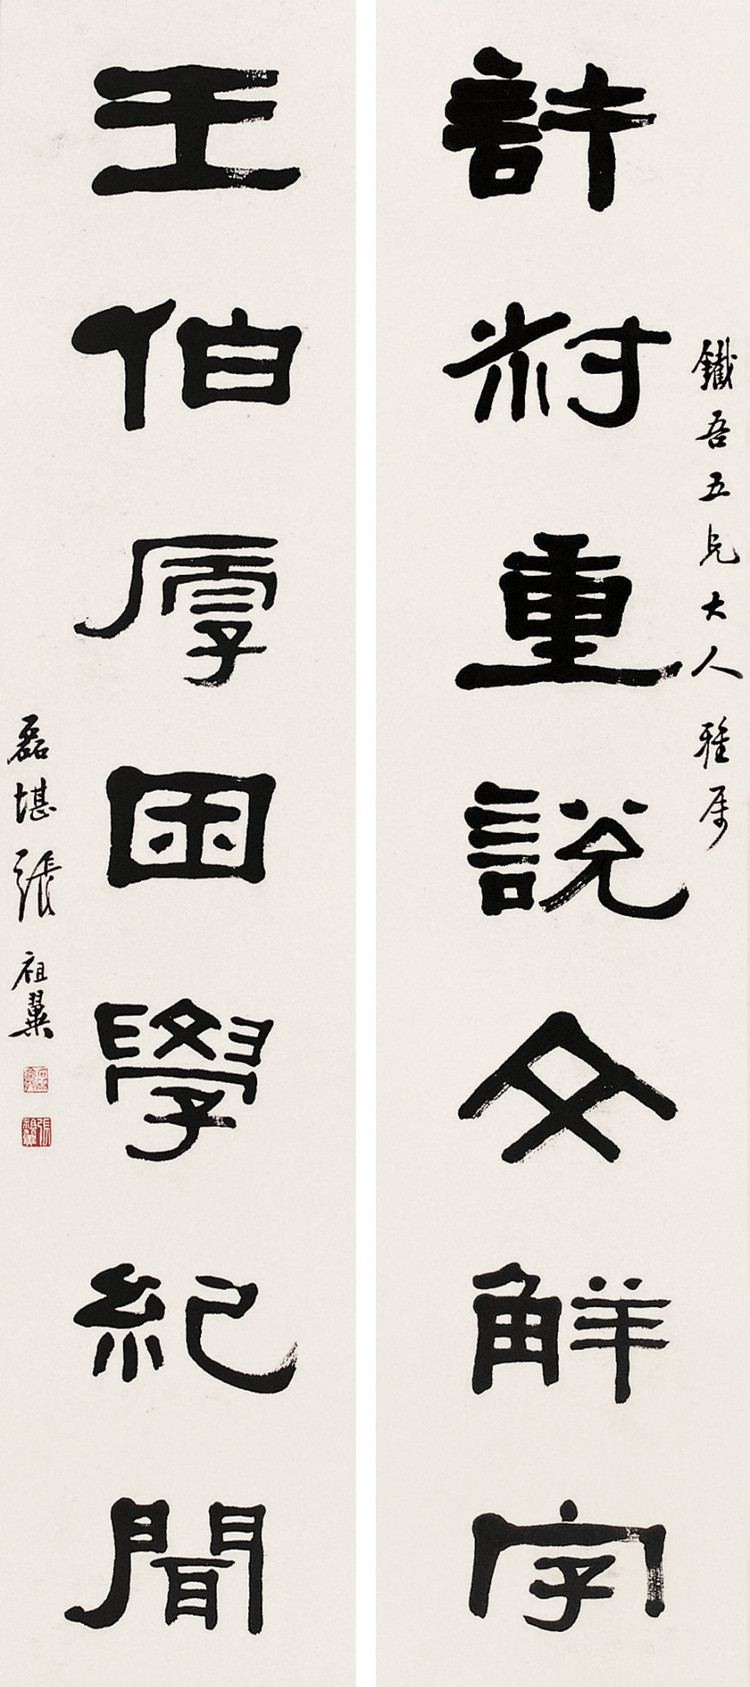 鐵吾五兄大人雅属
許叔重說文觧字
王伯厚困學紀聞
磊堪張祖翼
張祖翼